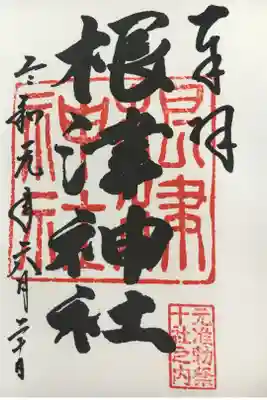 奉拝
根津神社
根津神社
元准勅祭
十社之内
令和元年六月二十日